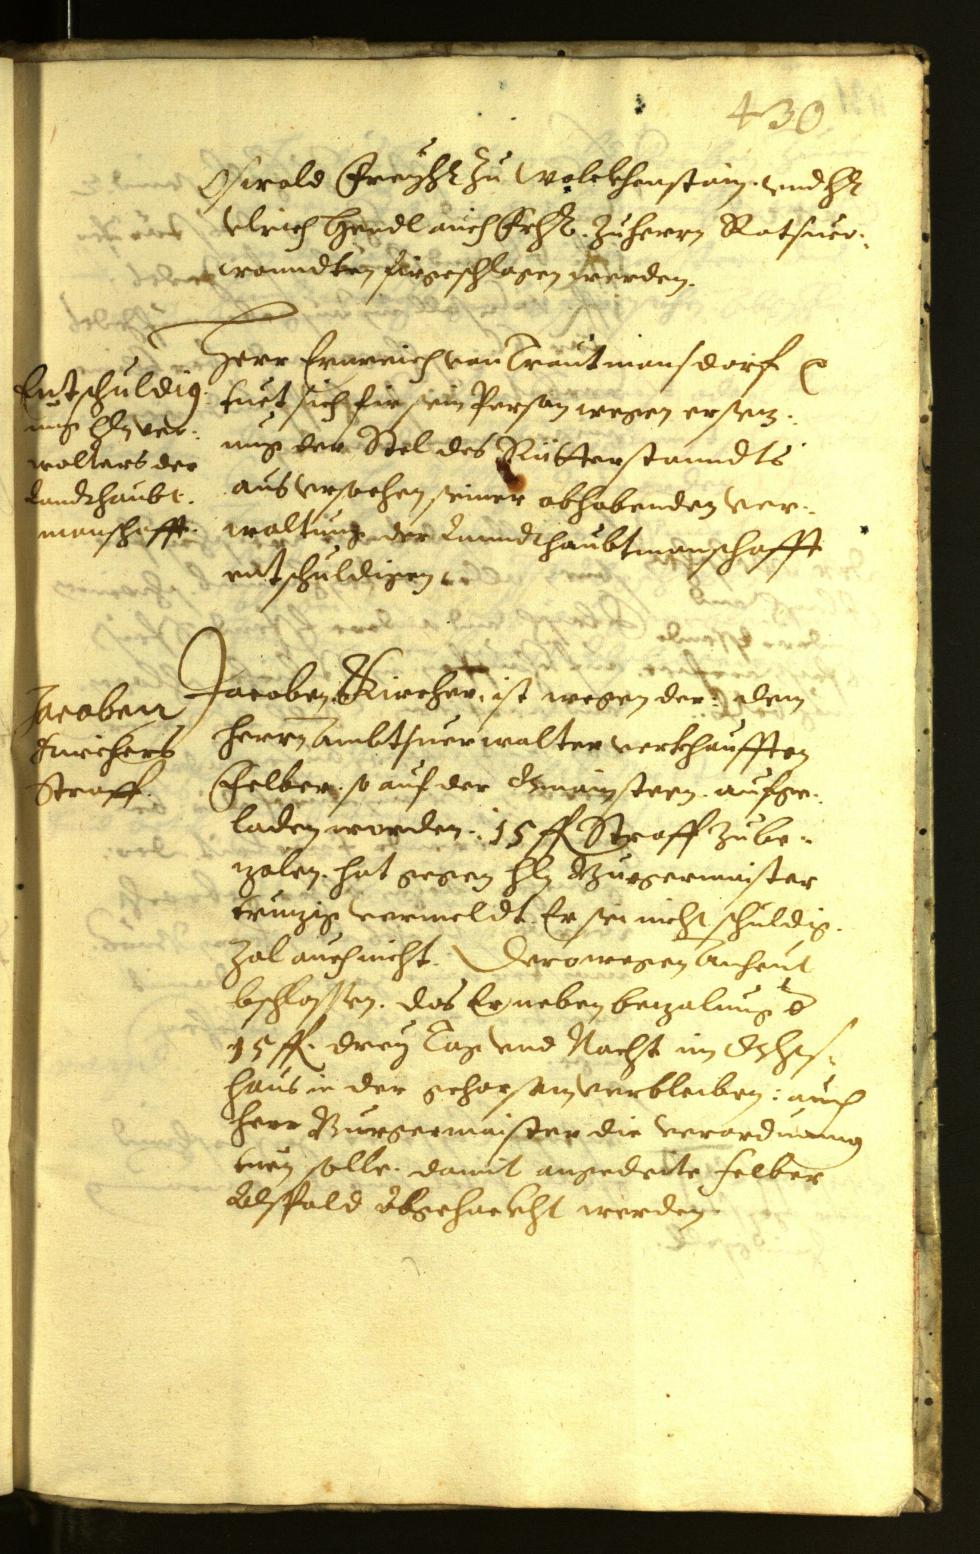 430
Oswald Freyhr zu Wolckhenstain. vnd Hr
Vlrich Hendl auch Frhr. zu herrn Ratsuer-
wanndten fürgeschlagen werden.
Entschuldig-
ung Hn ver-
walters der
Landthaubt-
manschafft.
Herr Ernreich von Trautmansdorf
tuet sich für sein Person wegen ersez-
ung der Stel des Ritterstanndts
aus vrsachen seiner obhabenden Ver-
waltung der Lanndthaubtmanschafft
entschuldigen.
Jacoben
Kirchers
Straff.
Jacoben Kircher, ist wegen der: dem
Herrn Ambtsuerwalter verkhaufften
Felber. so auf der gmain steen. aufge-
laden worden. 15 fl Straff zube-
zalen. hat gegen Hn Burgermaister
truzig vermeldt. Er sei nicht schuldig.
zal auch nicht. Derowegen anheut
bschlossen. das Er neben bezalung der
15 fl. drey Tag vnd Nacht im
haus in der gehorsam verbleiben: auch
Herr Burgermaister die verordnung
tuen solle. damit angedeite felber
Alspald abgehackht werden.